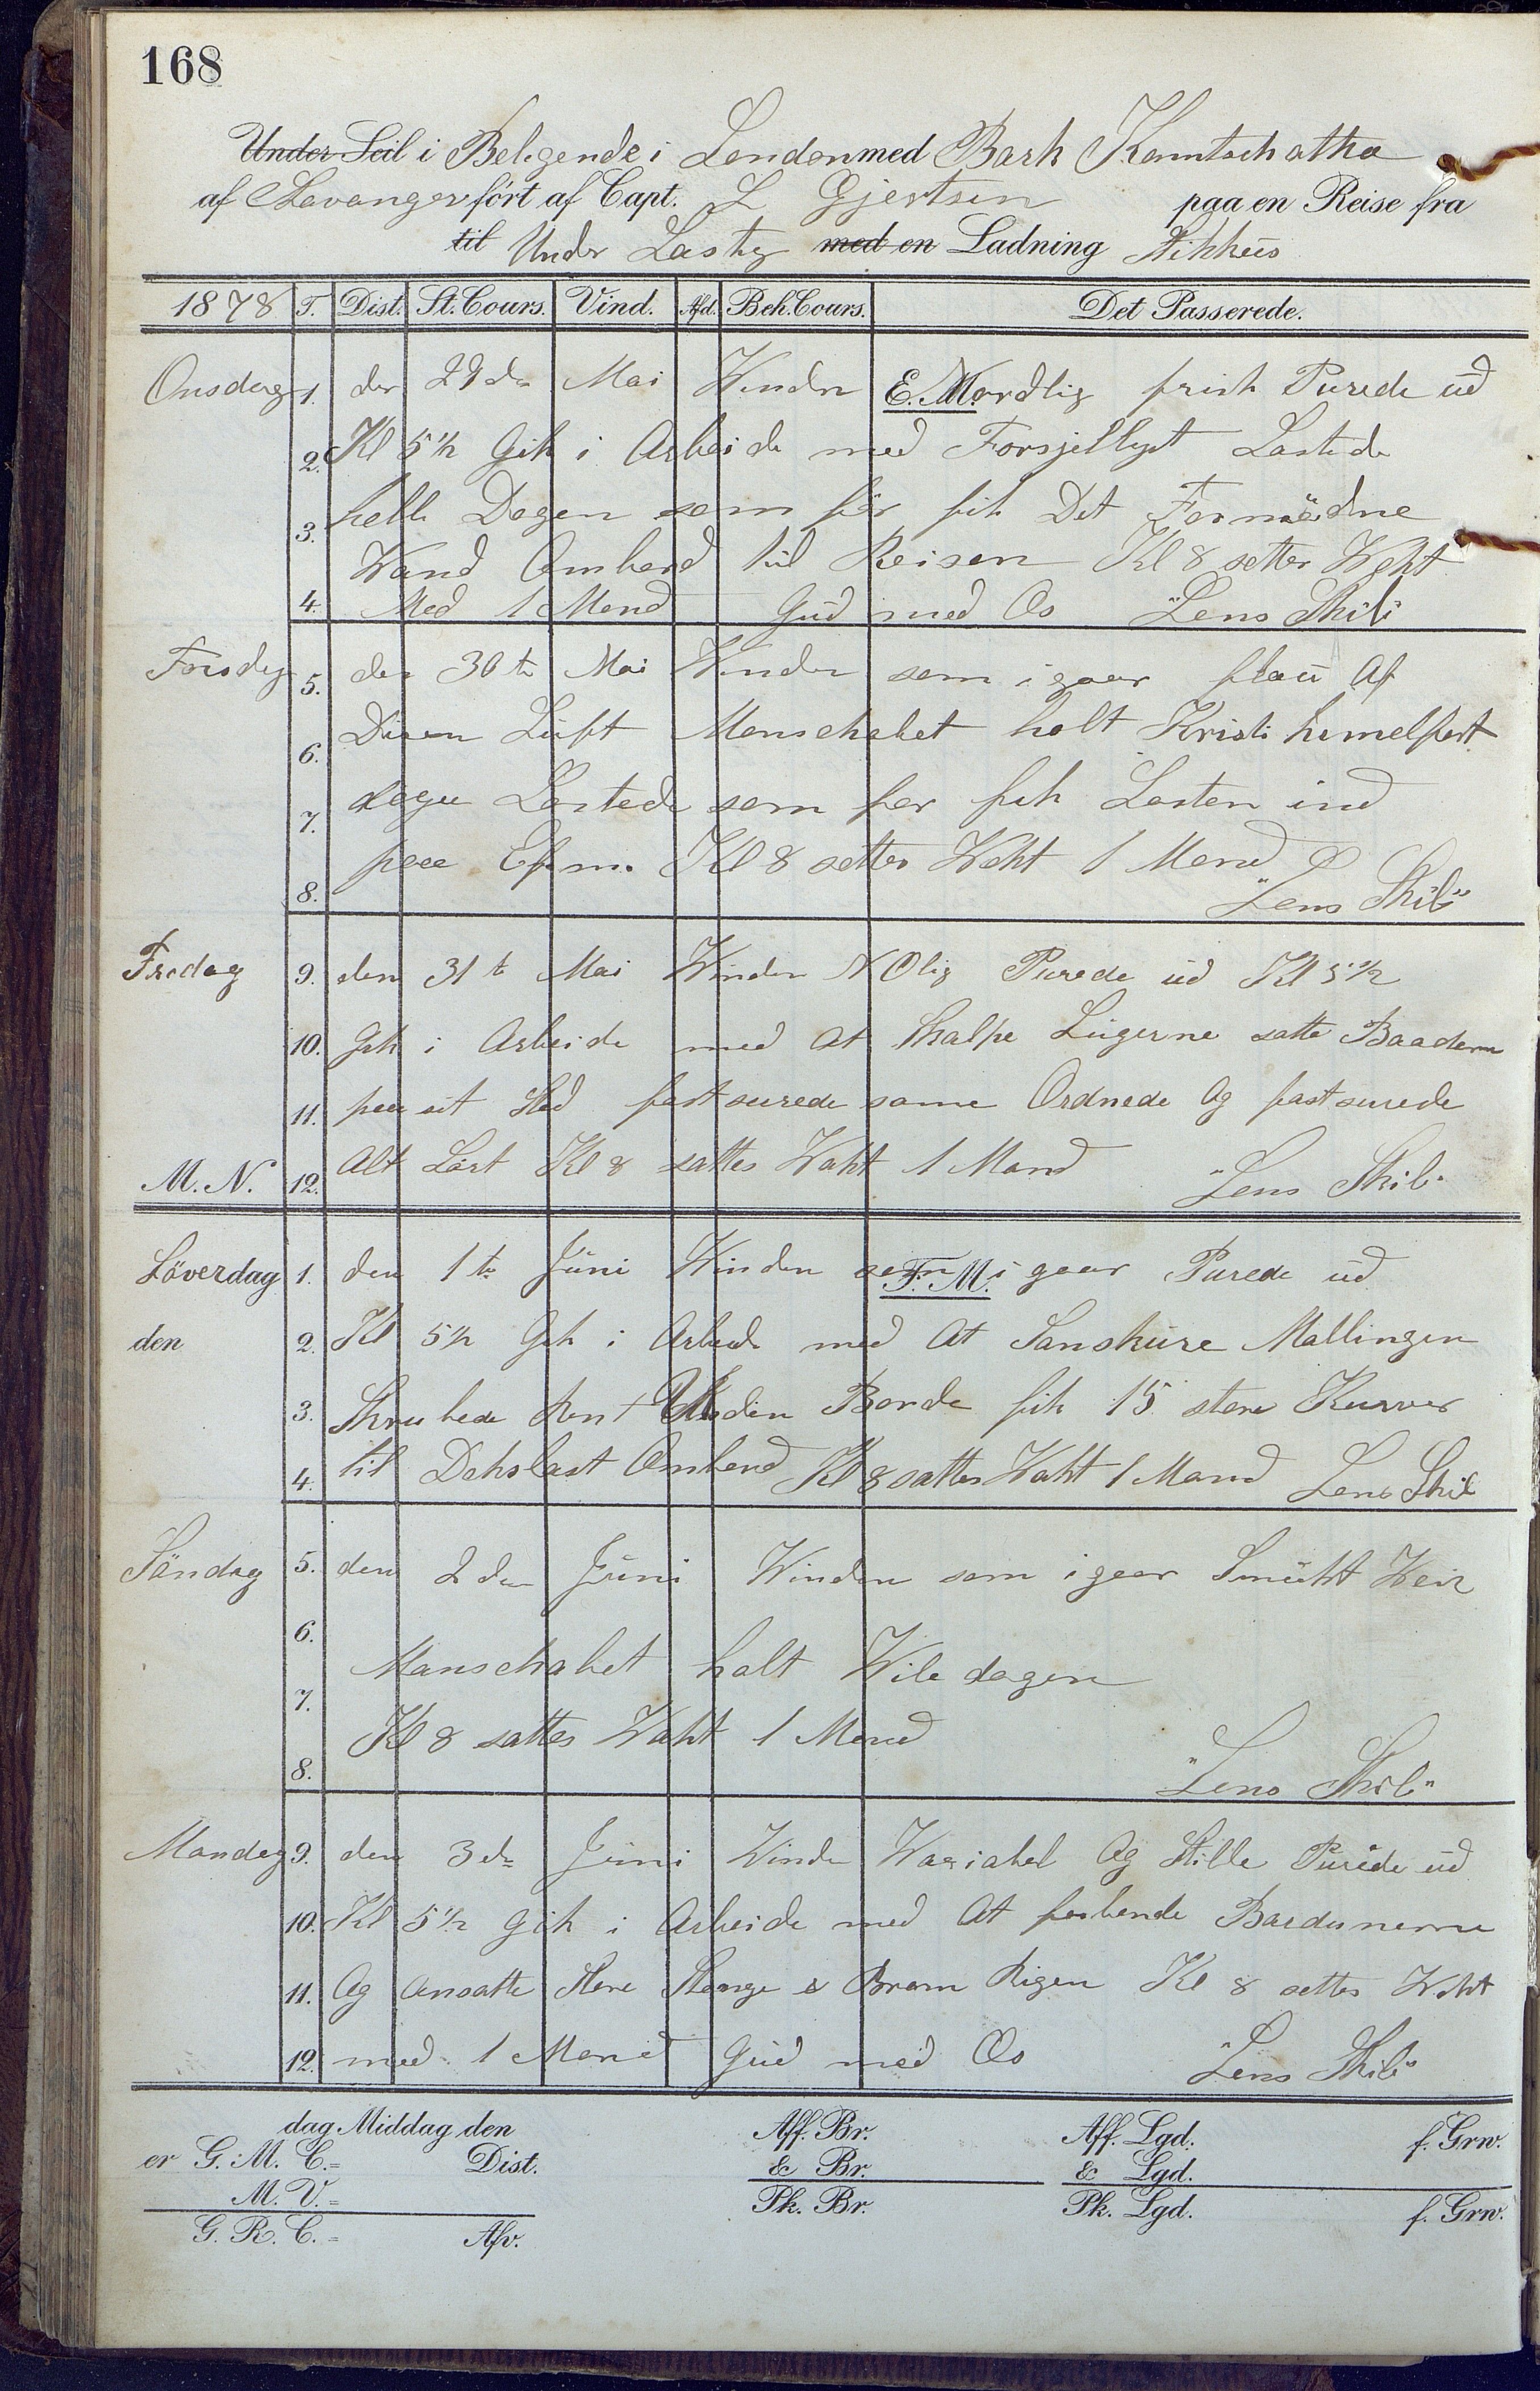 168
Under Seil i Beligende i London med Bark Kamtschatka
af Stavanger fört af Capt. L Gjertsen paa en Reise fra
til Under Lastg med en Ladning Stikkus
1878 T. Dist. St. Cours. Vind. Afd. Beh. Cours. Det Passerede.
Onsdag 1. den 29de Mai Winden E.M. Nordlig frisk Purede ud
2. Kl 5 1/2 Gik i Arbeide med Forsjelligt Lastede
3. hele Dagen som för fik Det Fornödne
Wand Ombord til Reisen Kl 8 settes Wakt
4. Med 1 Mand Gud med Os "Lens Skib
Torsdag 5. den 30te Mai Winden som igaar flau Af
6. Disen Luft Manschabet holt Kristi himelfart
7. dagen Lastede som för fik Lasten ind
8. paa Efm. Kl 8 settes Wakt 1 Mand
"Lens Skib"
Fredag 9. den 31te Mai Winden N Olig Purede ud Kl 5 1/2
10. Gik i Arbeide med at Skalpe Lugerne satte Baaden
11. paa sit Sted fastsurede same Ordnede Og fastsurede
M. N. 12. Alt Löst Kl 8 sattes Wakt 1 Mand "Lens Skib"
Löverdag 1. den 1te Juni Winden som F. M. igaar Purede ud
den 2. Kl 5 1/2 Gik i Arbeide med At Sanskure Mallingen
3. Skrubede Rent Uden Borde fik 15 store Kurver
4. til Dekslast Ombord Kl 8 sattes Wakt 1 Mand Lens Skib
Söndag 5. den 2den Juni Winden som igaar Smukt Weir
6.
Manschabet holt Wile dagen
7.
Kl 8 sattes Wakt 1 Mand
8.
"Lens Skib"
Mandag 9. den 3de Juni Winden Wariabel Og Stille Purede ud
10. Kl 5 1/2 Gik i Arbeide med At forbende Bardunerne
11. Og Ansatte Store Stange & Bram Rigen Kl 8 settes Wakt
12. med 1 Mand Gud med Os "Lens Skib"
dag Middag den Aff. Br. Aff. Lgd. f. Grw.
er G. M. C.= Dist. & Br. & Lgd.
M. V.= Pk. Br. Pk. Lgd. f. Grw.
G. R. C.= Afv.